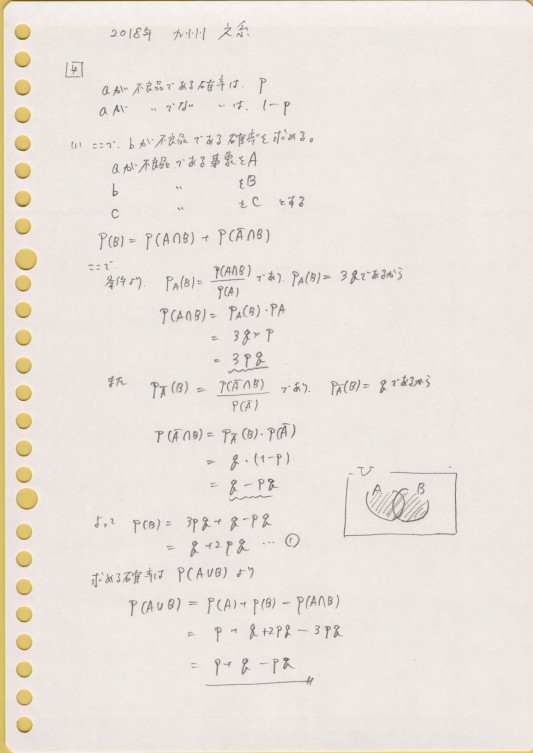 2018年 九州 文系
4
aが不良品である確率は、p
aが 〃 でない 〃 は、1-p
(1) ここで、bが不良品である確率を求める。
aが不良品である事象をA
b 〃 をB
c 〃 をC とする
P(B) = P(A∩B) + P(Ā∩B)
ここで、
条件より、 P_A(B) = P(A∩B)/P(A) であり、P_A(B) = 3qであるから
P(A∩B) = P_A(B)・PA
= 3q×p
= 3pq
また P_Ā(B) = P(Ā∩B)/P(Ā) であり、 P_Ā(B) = qであるから
P(Ā∩B) = P_Ā(B)・P(Ā)
= q・(1-p)
= q - pq
U
A B
よって P(B) = 3pq + q - pq
= q + 2pq … ①
求める確率は P(A∪B) より
P(A∪B) = P(A) + P(B) - P(A∩B)
= p + q + 2pq - 3pq
= p + q - pq